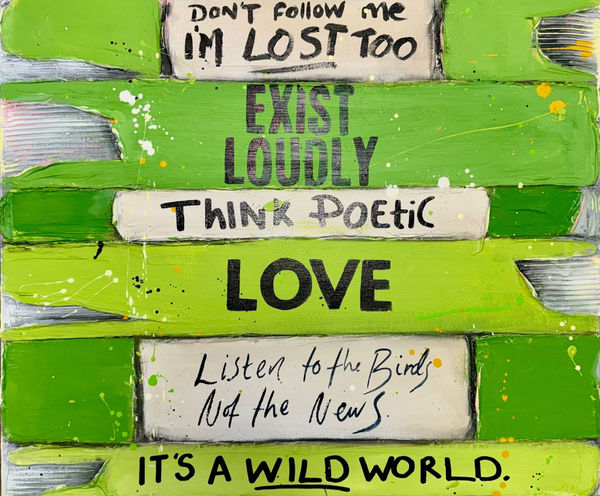 DON'T FOLLOW ME
I'M LOST TOO
EXIST
LOUDLY
THINK POETIC
LOVE
Listen to the Birds
Not the News
IT'S A WILD WORLD.